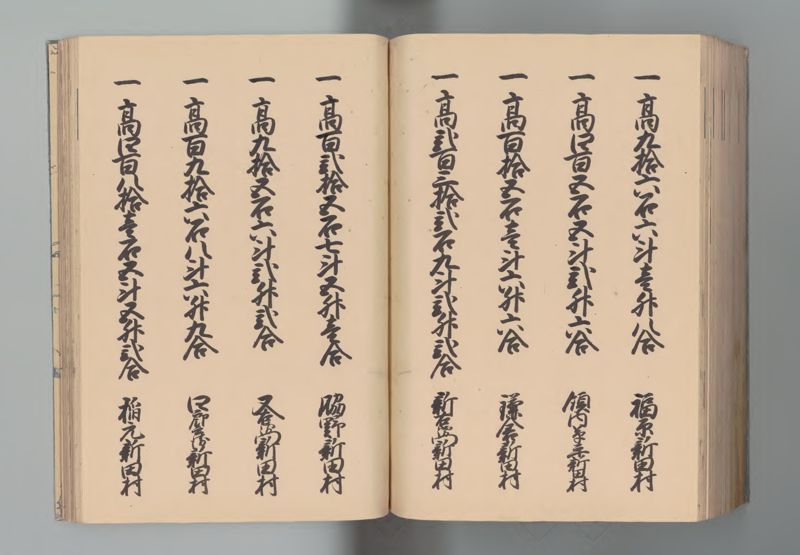 一 高九拾六石六斗壱升八合 福原新田村
一 高四百五石五斗弐升六合 領内新田村
一 高百拾五石壱斗六升六合 鎌倉新田村
一 高弐百三拾弐石九斗弐升弐合 新右衛門新田村
一 高百弐拾五石七斗五升壱合 脇野新田村
一 高九拾五石六斗弐升弐合 又右衛門新田村
一 高百九拾六石八斗六升九合 四郎兵衛新田村
一 高四百八拾壱石五斗五升弐合 稲元新田村